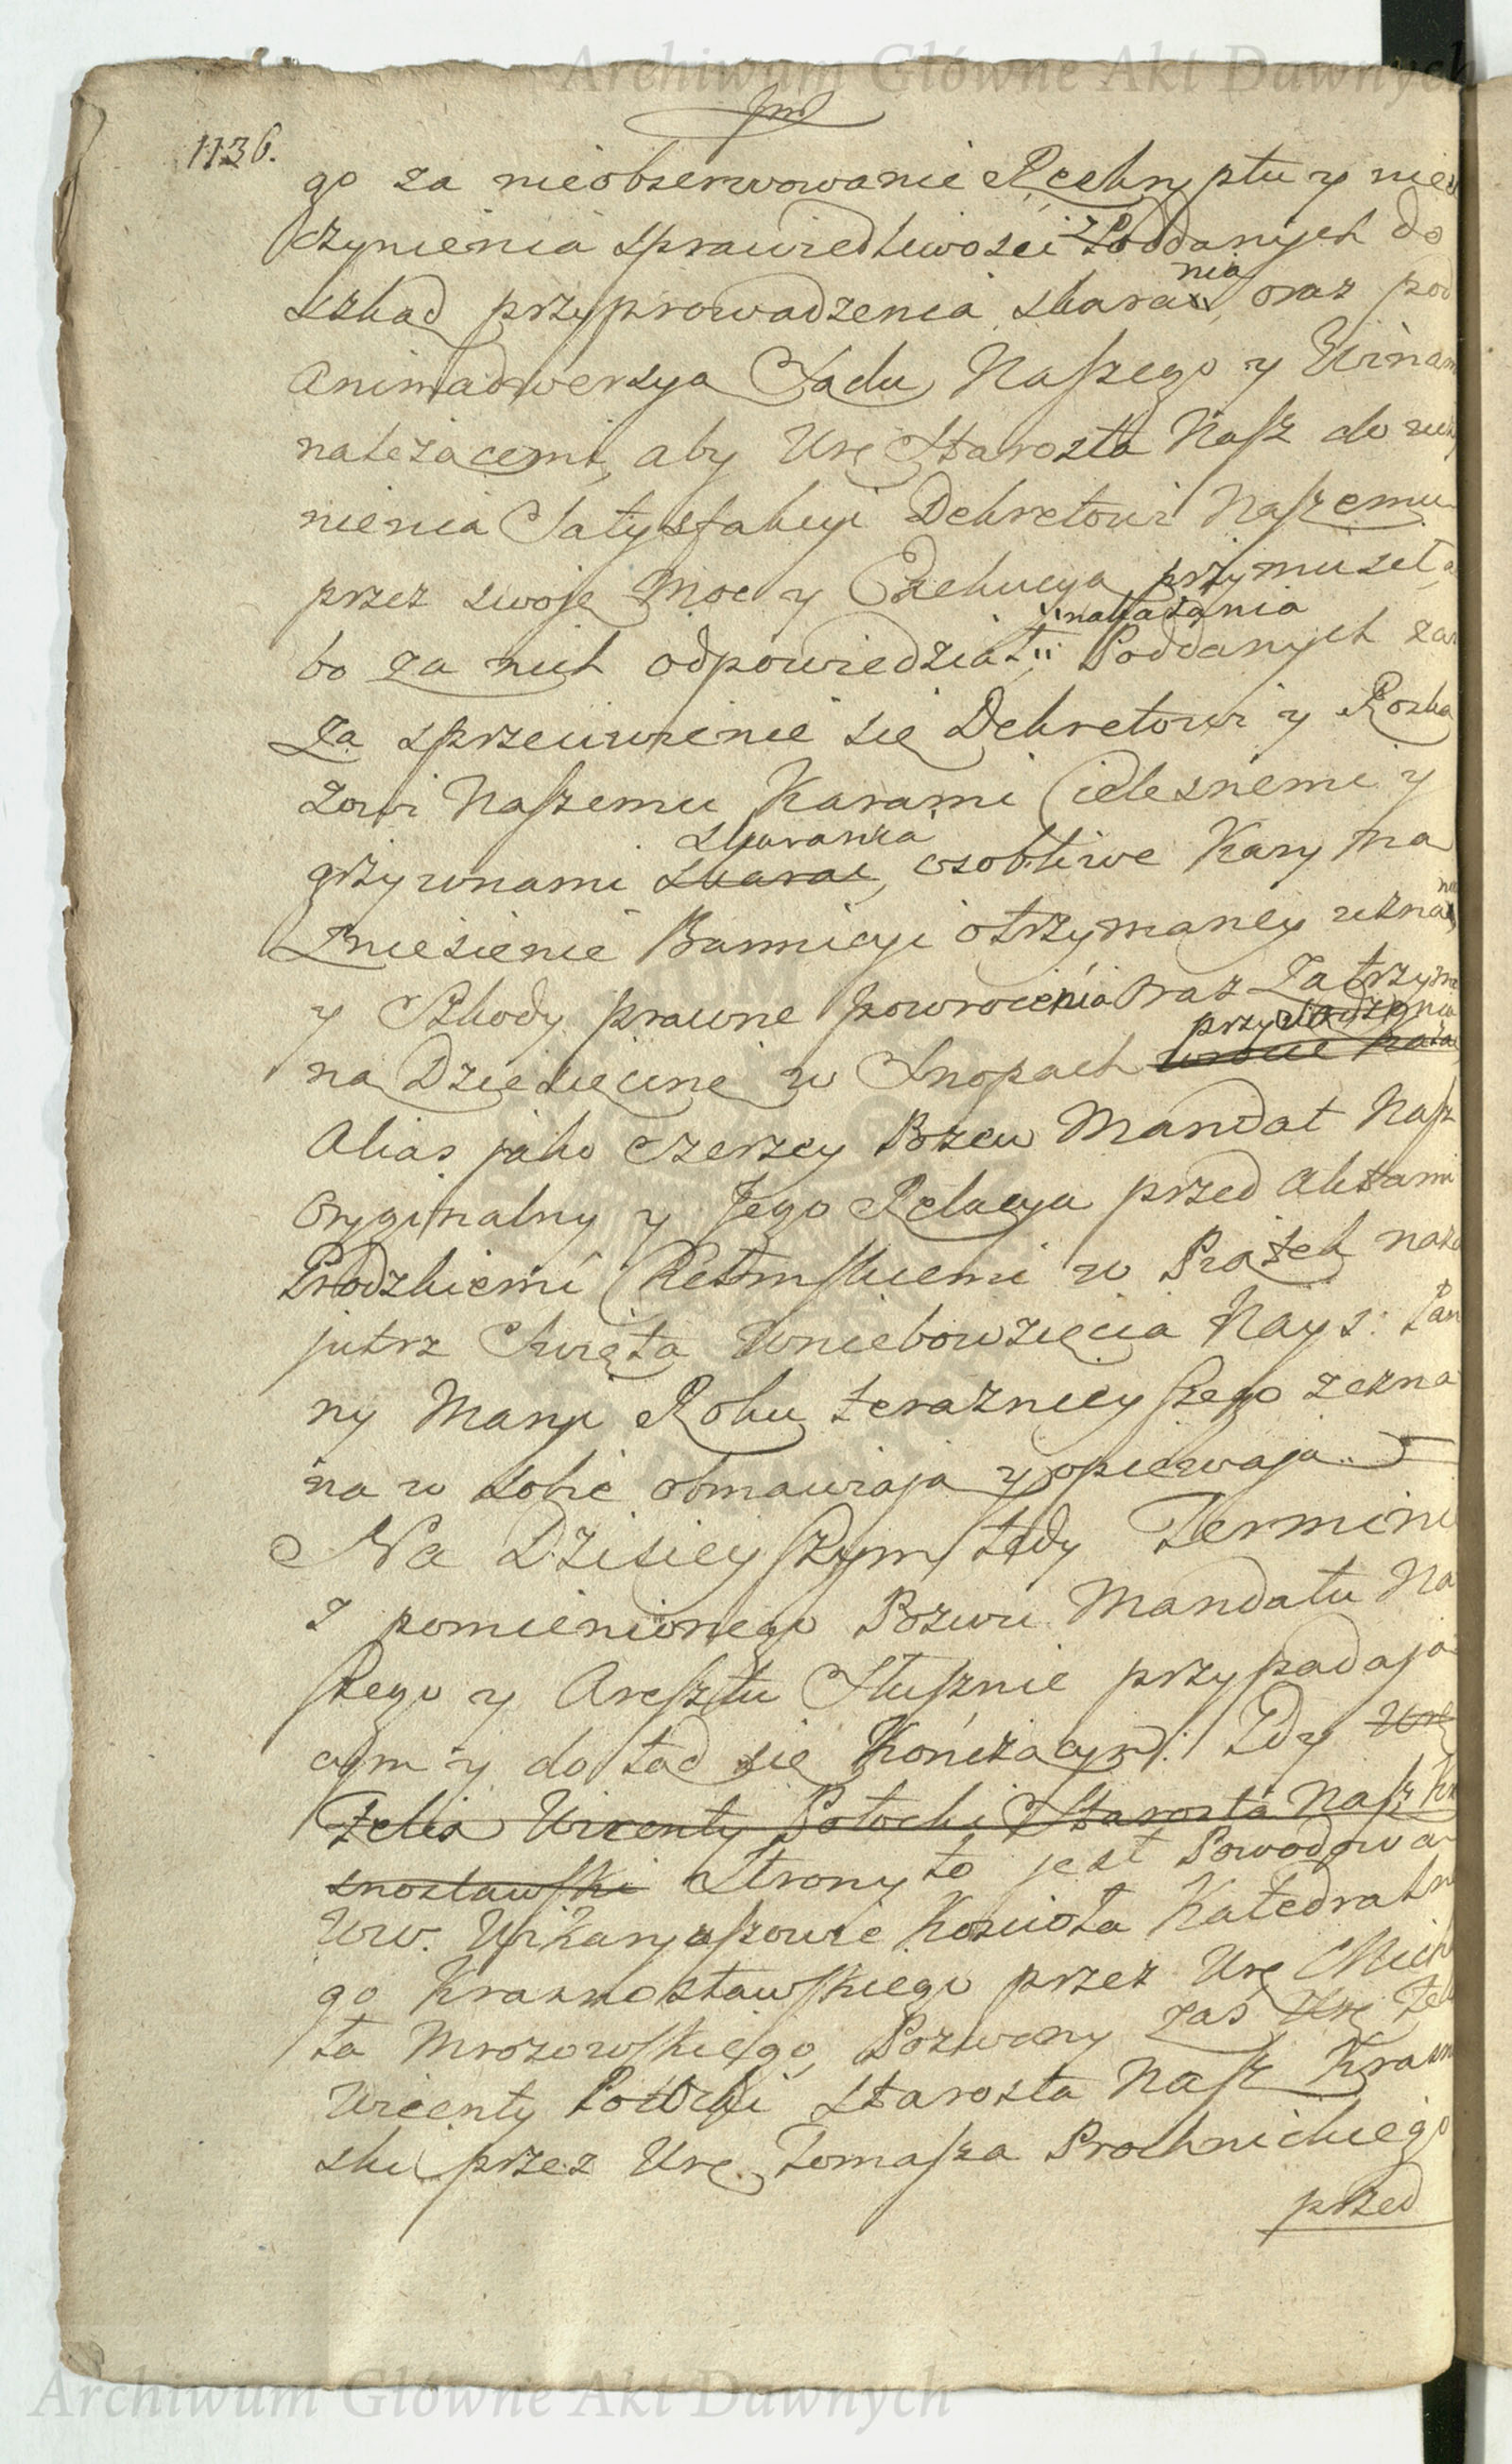 Archiwum Główne Akt Dawnych
1136.
go za nieobserwowanie Reskryptu y nieu
czynienia sprawiedliwości z Poddanych do
szkod przyprowadzenia skara nia, oraz pod
Animadwersya Sądu Naszego y Winam
należącemi, aby Ur. Starosta Nasz do uczy
nienia Satysfakcyi Dekretowi Naszemu
przez swoię Moc y Exekucyą przymusił, a
bo za nich odpowiedział, nakazania Poddanych zas
za sprzeciwienie się Dekretowi y Rozka
zowi Naszemu Karami Cielesnemi y
grzywnami skarac skarania, osobliwe Kary na
Zniesienie Bannicyi otrzymaney uzna nia
y Szkody prawne powrocenia oraz Zatrzyma
na Dziesięcinę w Snopach przysądzenia
Alias jako szerzey Pozew Mandat Nasz
Oryginalny y Jego Relacya przed Aktami
Grodzkiemi Chełmskiemi w Piątek naza
jutrz Święta Wniebowzięcia Nays: Pan
ny Maryi Roku teraznieyszego zezna
na w sobie obmawiaią y opiewaią
Na Dzisieyszym tedy Terminie
z pomienionego Pozwu Mandatu Na
szego y Aresztu Słusznie przypadaią
cym y dotąd się Kończącym: Gdy Ur
Felix Wincenty Potocki Starosta Nasz Kra
snostawski Strony to jest Powodowa
Ww. Wikaryuszowie Kościoła Katedralne
go Krasnostawskiego przez Ur. Mich
ła Mrozowskiego, Pozwany zas Ur. Felix
Wicenty Potocki Starosta Nasz Krasno
ski przez Ur. Tomasza Prochnickiego
przed
Archiwum Główne Akt Dawnych